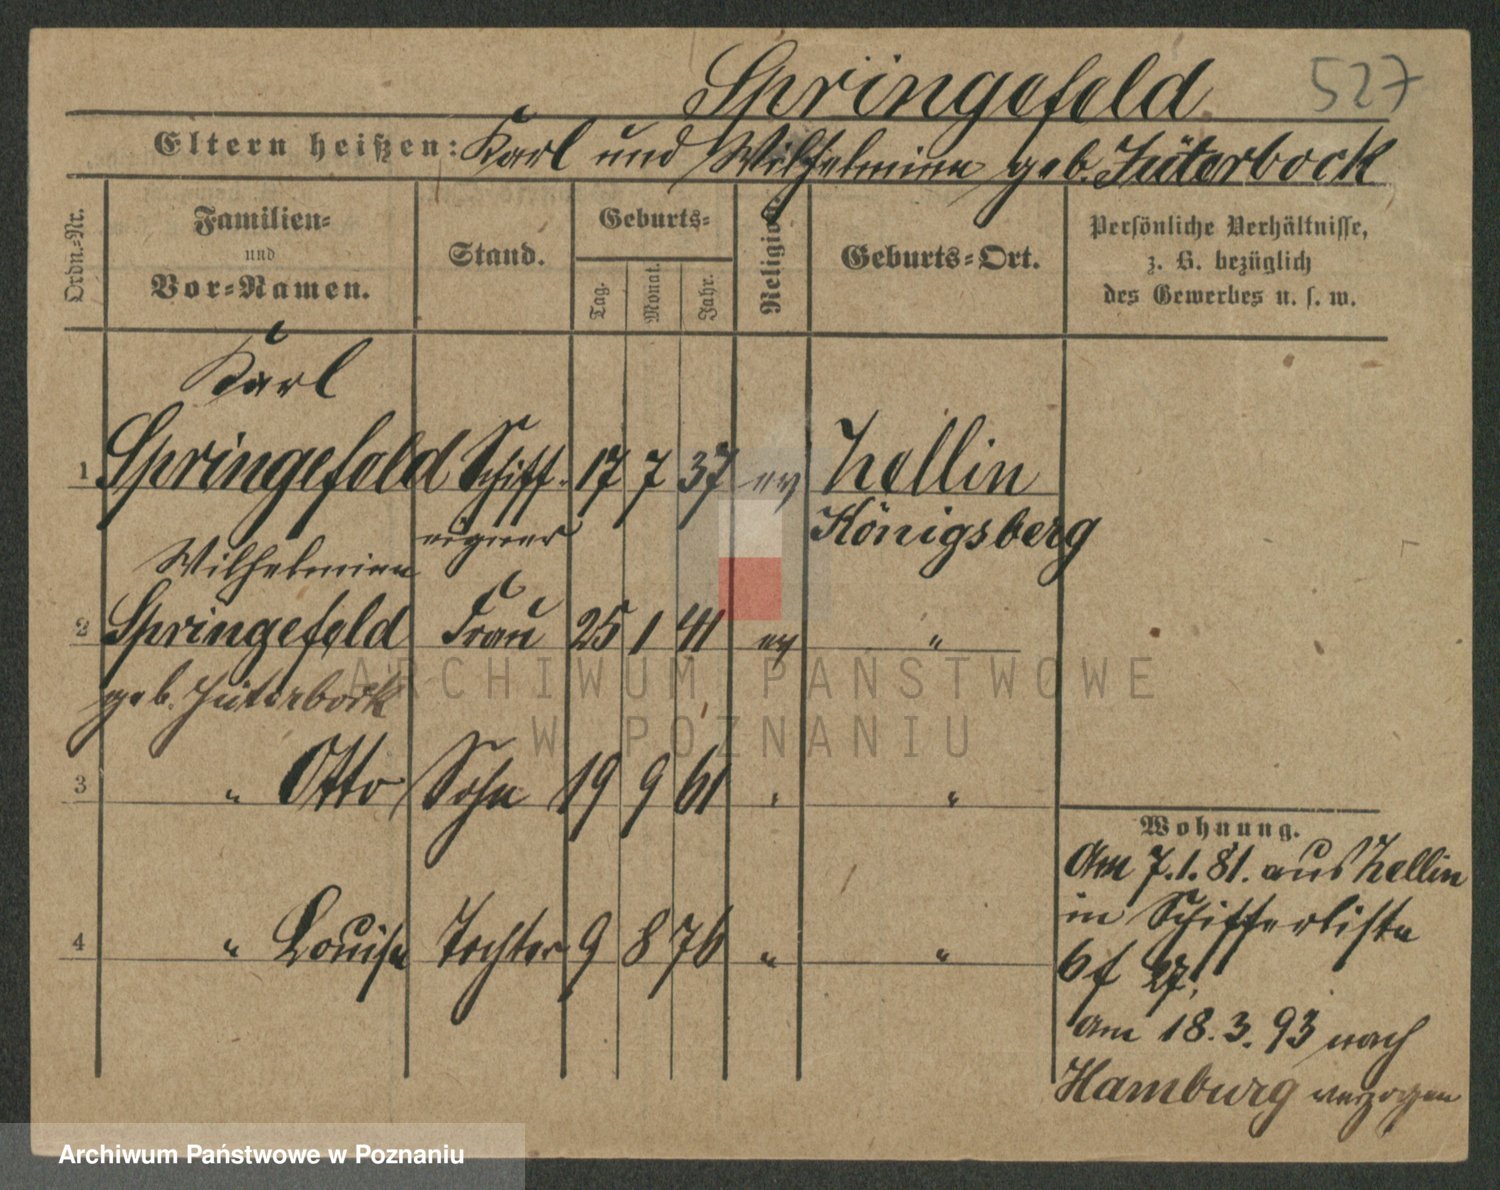 Springefeld 527
Eltern heißen: Karl und Wilhelmine geb. Jüterbock
Ordn.-Nr.
Familien-
und
Vor-Namen.
Stand.
Geburts-
Tag.
Monat.
Jahr.
Religion.
Geburts-Ort.
Persönliche Verhältnisse,
z. B. bezüglich
des Gewerbes u. s. w.
Karl
1 Springefeld Schiff- 17 7 37 ev Zellin
eigner Königsberg
Wilhelmine
2 Springefeld Frau 25 1 41 ev "
geb. Jüterbock
ARCHIWUM PAŃSTWOWE
W POZNANIU
3 " Otto Sohn 19 9 61 " "
4 " Louise Tochter 9 8 76 " "
Wohnung.
Am 7.1.81. aus Zellin
in Schifferliste
6 f 27.
am 18.3.93 nach
Hamburg verzogen
Archiwum Państwowe w Poznaniu